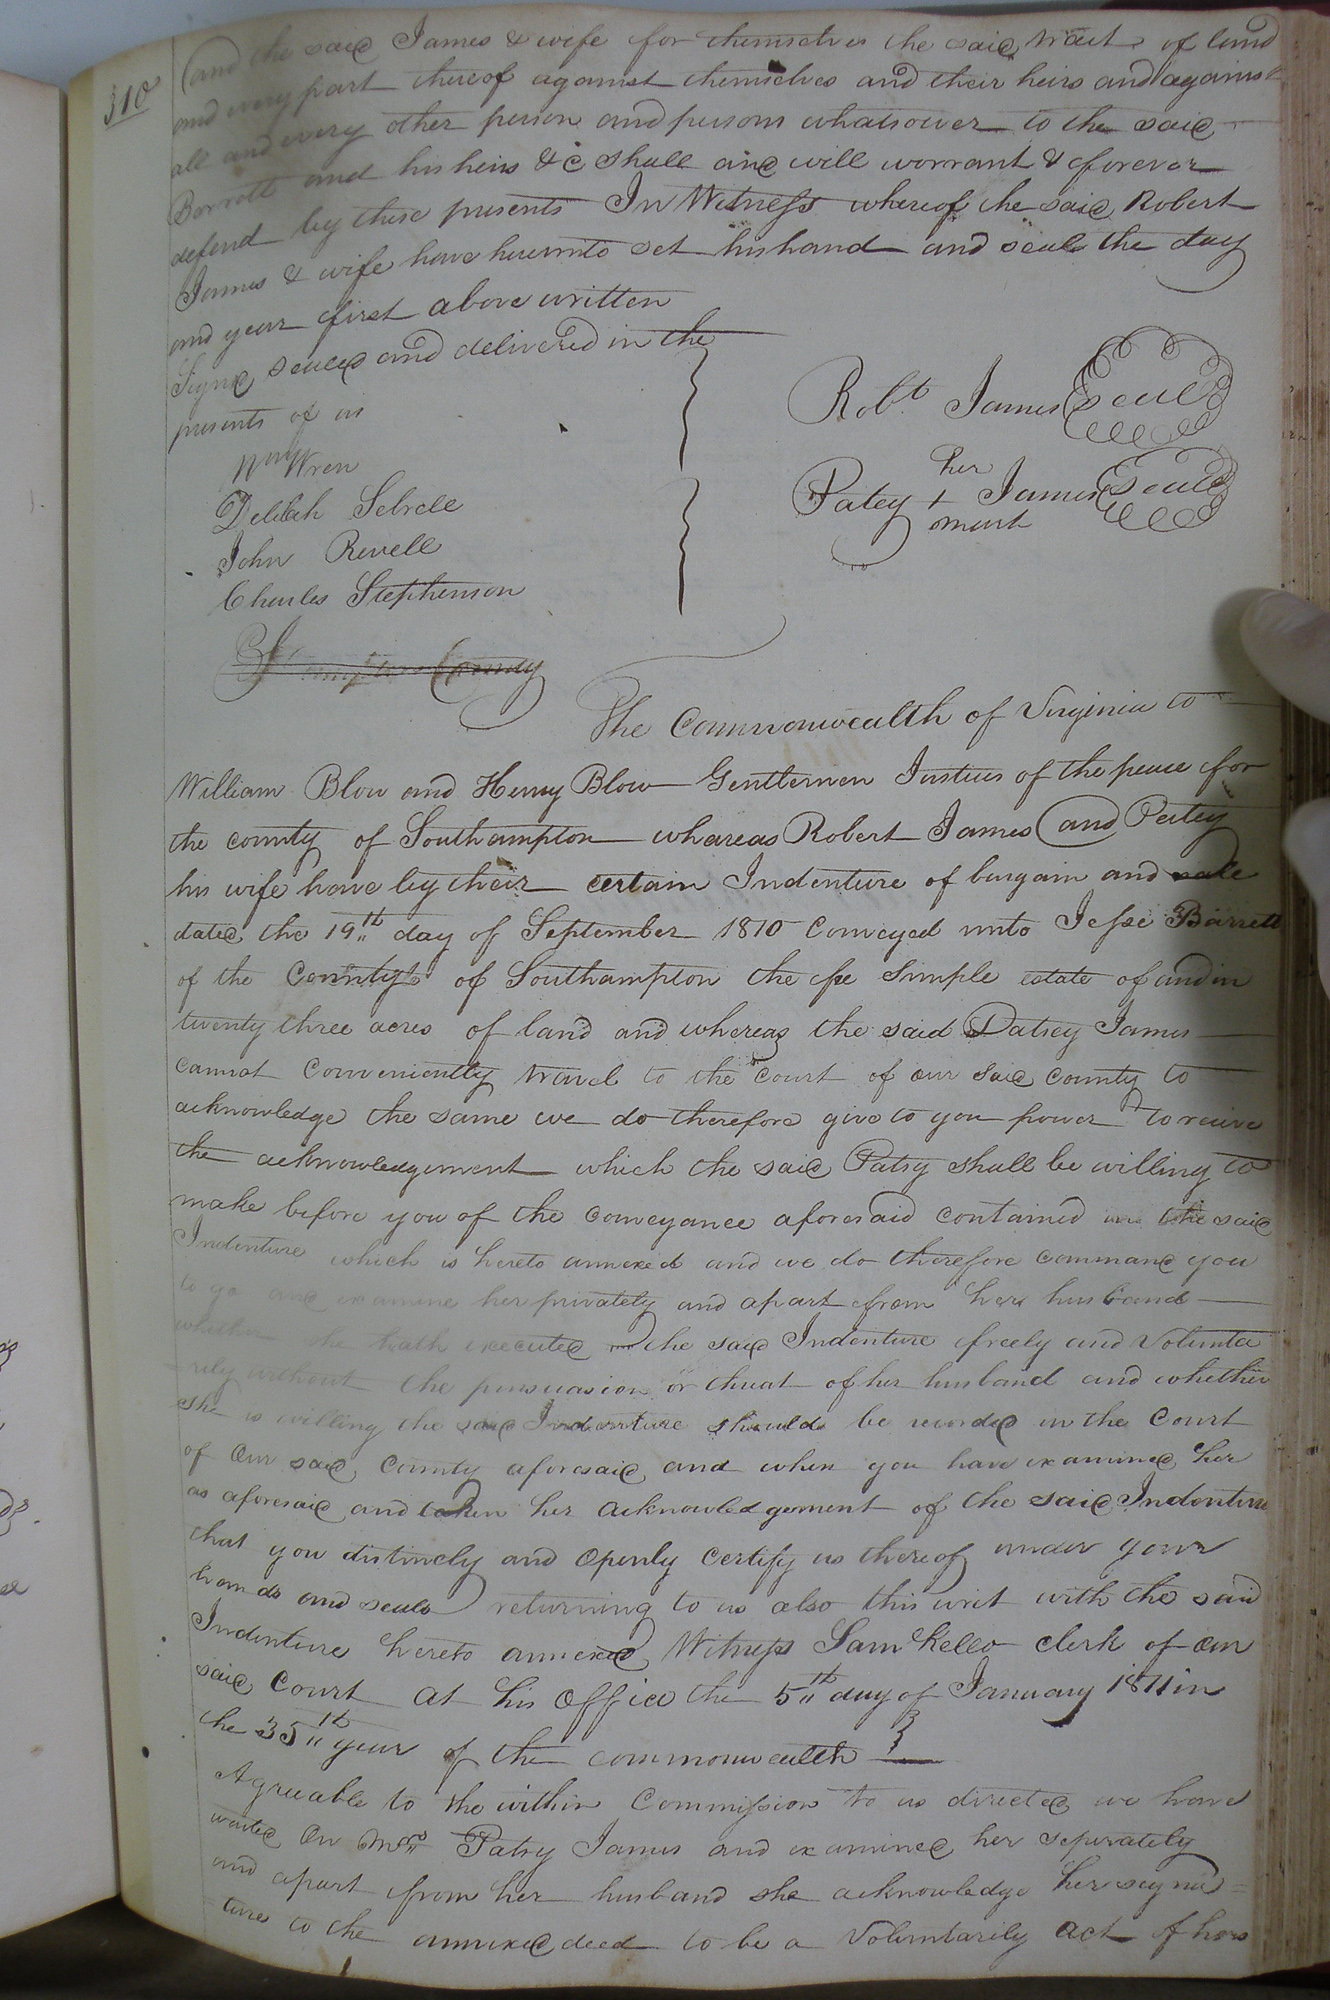 310
and the said James & wife for themselves the said tract of land
and every part thereof against themselves and their heirs and against
all and every other person and persons whatsoever to the said
Barrott and his heirs &c shall and will worrant & forever
defend by these presents In Witness whereof the said Robert
James & wife have hereunto set his hand and seale the day
and year first above written
Signd sealed and delivered in the
presents of us
Wm Wren
Delilah Selrele
John Revell
Charles Stephenson
Robt. James Seal
her
Patcy + James Seal
mark
Southampton County
The Commonwealth of Virginia to
William Blow and Henry Blow Gentlemen Justices of the peace for
the county of Southampton whareas Robert James and Patcy
his wife have by their certain Indenture of bargain and sale
dated the 19th day of September 1810 conveyed unto Jesse Barrett
of the County of Southampton the fee simple estate of and in
twenty three acres of land and whereas the said Patsey James
cannot conveniently travel to the court of our said county to
acknowledge the same we do therefore give to you power to receive
the acknowledgement which the said Patsy shall be willing to
make before you of the conveyance aforesaid contained in the said
Indenture which is hereto annexed and we do therefore command you
to go and examine her privately and apart from her husband
whether she hath executed the said Indenture freely and Volunta
rily without the persuasion or threat of her husband and whether
she is willing the said Indenture should be recorded in the Court
of our said County aforesaid and when you have examined her
as aforesaid and taken her acknowledgement of the said Indenture
that you distinctly and openly certify us thereof under your
hands and seals returning to us also this writ with the said
Indenture hereto annexed Witness Saml Kello clerk of our
said court at his office the 5th day of January 1811 in
the 35th year of the commonwealth
Agreeable to the within Commission to us directed we have
waited on Mrs Patsy James and examined her seperately
and apart from her husband she acknowledge her signa=
tures to the annexed deed to be a Voluntarily act of hers